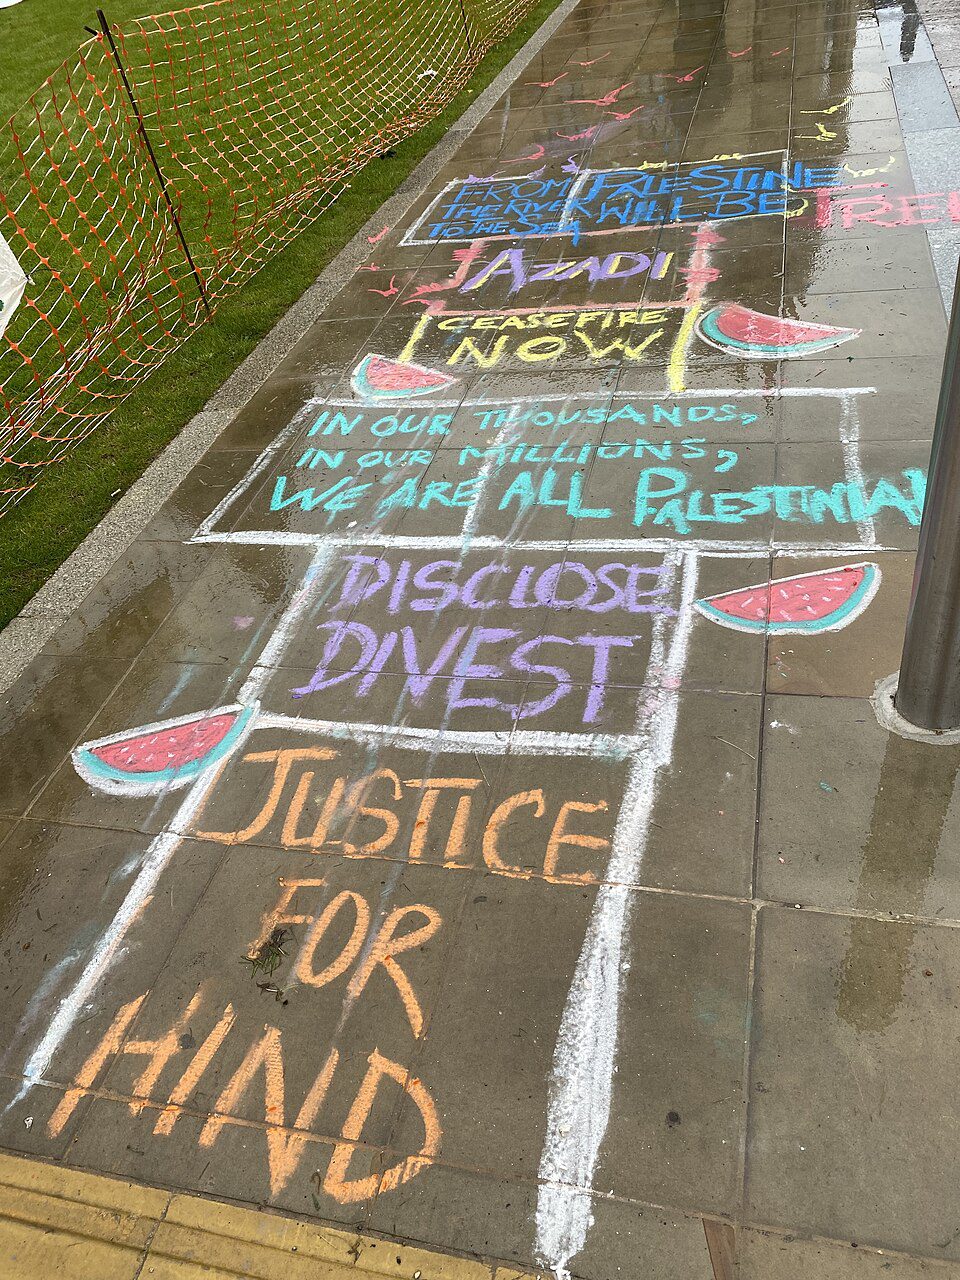 FROM
THE RIVER
TO THE SEA
PALESTINE
WILL BE FREE
AZADI
CEASEFIRE
NOW
IN OUR THOUSANDS,
IN OUR MILLIONS,
WE ARE ALL PALESTINIAN
DISCLOSE
DIVEST
JUSTICE
FOR
HIND